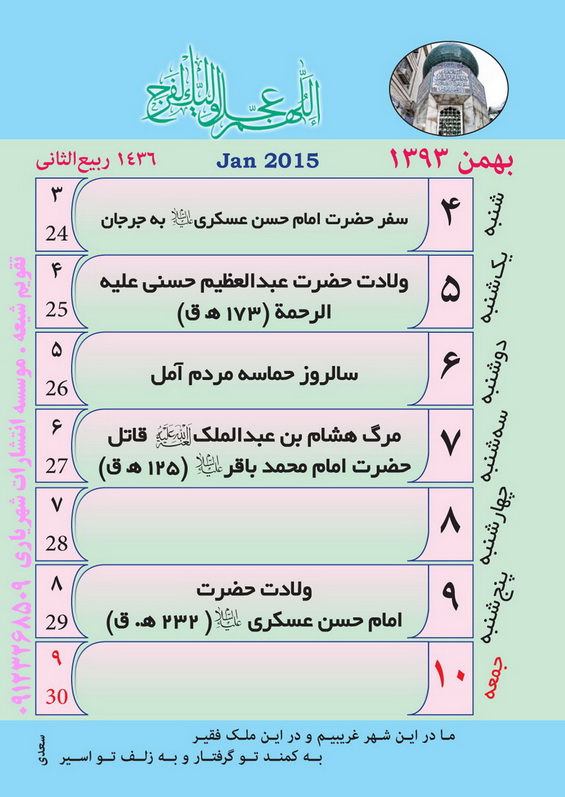 اللهم عجل لولیک الفرج
بهمن ۱۳۹۳
Jan 2015
۱۴۳۶ ربیع‌الثانی
شنبه
۴
سفر حضرت امام حسن عسکری علیه‌السلام به جرجان
۳
24
یک‌شنبه
۵
ولادت حضرت عبدالعظیم حسنی علیه
الرحمة (۱۷۳ ه ق)
۴
25
دوشنبه
۶
سالروز حماسه مردم آمل
۵
26
سه‌شنبه
۷
مرگ هشام بن عبدالملک لعنةالله‌علیه قاتل
حضرت امام محمد باقر علیه‌السلام (۱۲۵ ه ق)
۶
27
چهارشنبه
۸
۷
28
پنج‌شنبه
۹
ولادت حضرت
امام حسن عسکری علیه‌السلام (۲۳۲ ه. ق)
۸
29
جمعه
۱۰
۹
30
تقویم شیعه . موسسه انتشارات شهریاری ۰۹۱۲۳۲۶۸۵۰۹
ما در این شهر غریبیم و در این ملک فقیر
به کمند تو گرفتار و به زلف تو اسیر
سعدی